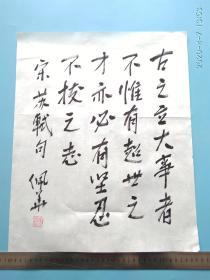 古之立大事者
不惟有超世之
才亦必有坚忍
不拔之志
宋苏轼句 佩华
2020-4-7 13:03